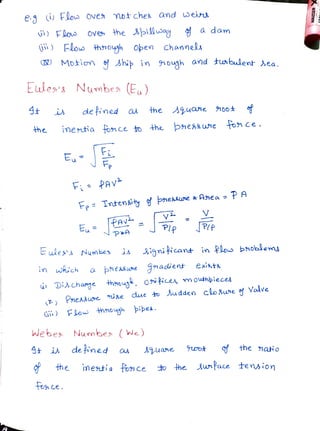 e.g (i) Flow over notches and weirs
ii) Flow over the spillway of a dam
(iii) Flow through open channels
(iv) Motion of ship in rough and turbulent sea.
Euler's Number (Eu)
It is defined as the square root of
the inertia force to the pressure force.
Eu = √(Fi/Fp)
Fi = ρAV²
Fp = Intensity of pressure * Area = PA
Eu = √(ρAV²/P*A) = √(V²/P/ρ) = V/√(P/ρ)
Euler's Number is significant in flow problems
in which a pressure gradient exists
(i) Discharge through, orifices, mouthpieces
(ii) Pressure rise due to sudden closure of valve
(iii) Flow through pipes.
Webes Number (We)
It is defined as square root of the ratio
of the inertia force to the surface tension
force.